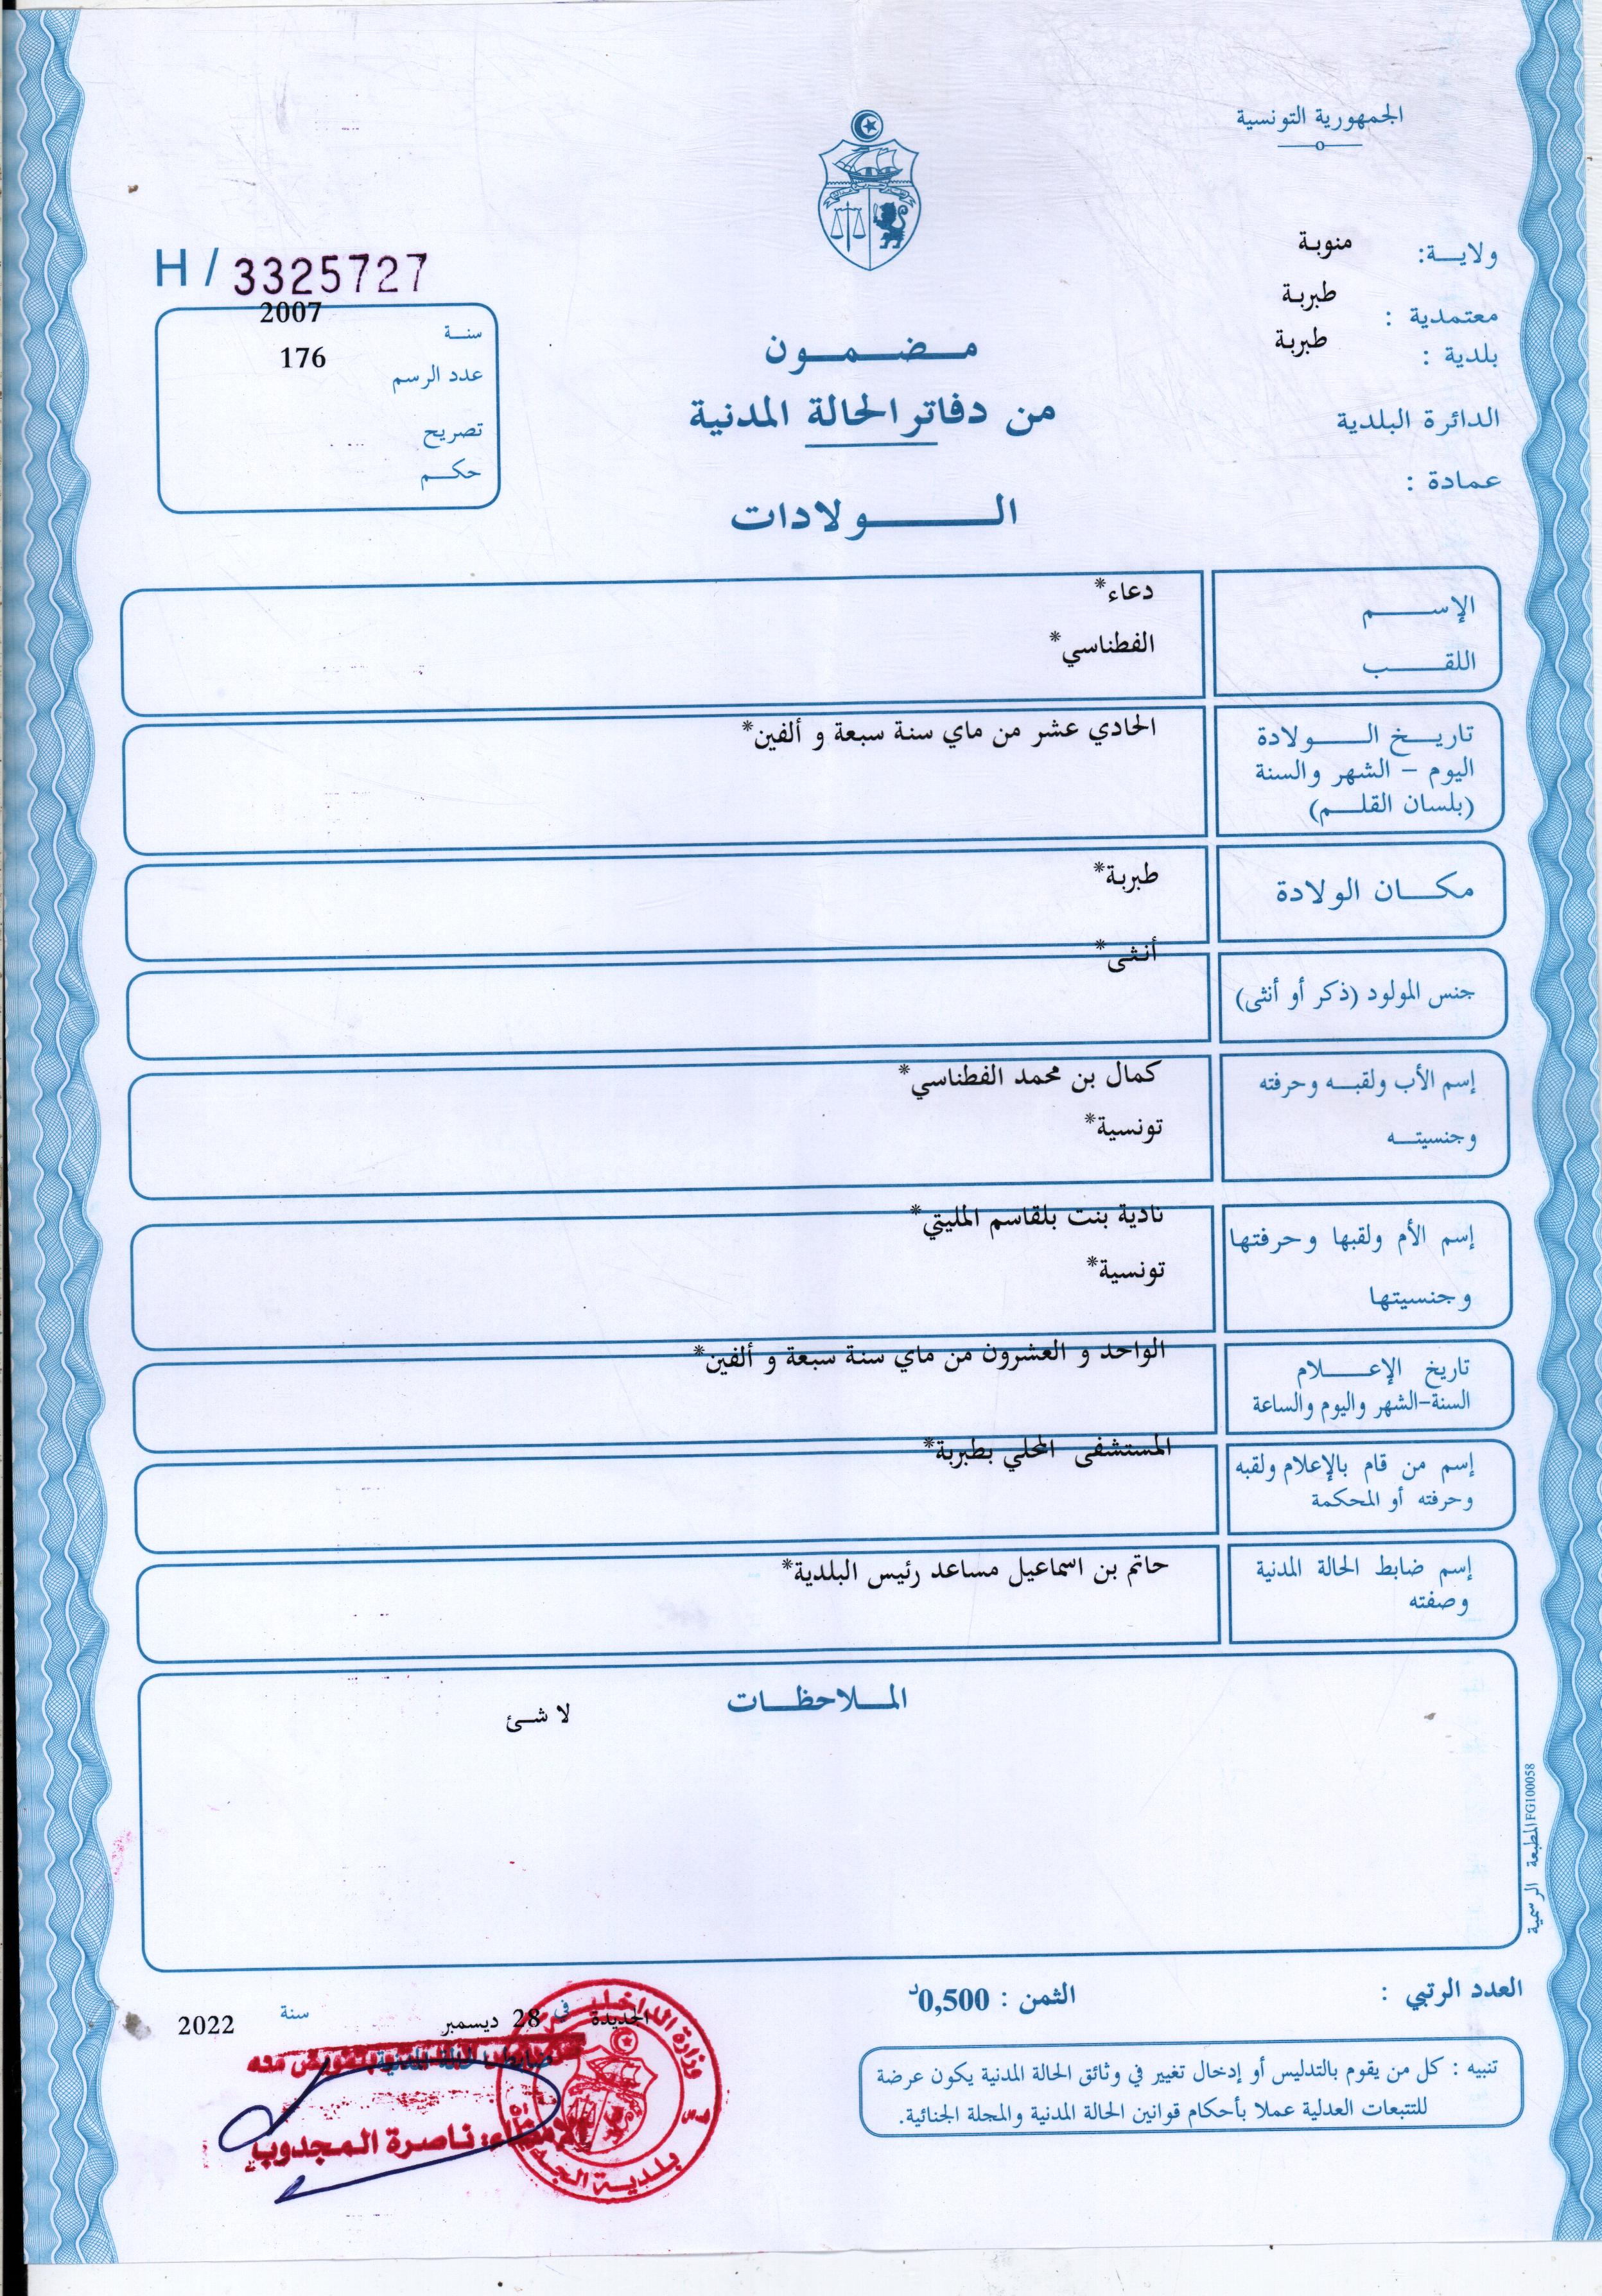 الجمهورية التونسية
ولاية: منوبة
معتمدية : طبربة
بلدية : طبربة
الدائرة البلدية
عمادة :
H / 3325727
سنة 2007
عدد الرسم 176
تصريح
حكم
مضمون
من دفاتر الحالة المدنية
الولادات
الإسم دعاء*
اللقب الفطناسي*
تاريخ الولادة الحادي عشر من ماي سنة سبعة و ألفين*
اليوم - الشهر والسنة
(بلسان القلم)
مكان الولادة طبربة*
جنس المولود (ذكر أو أنثى) أنثى*
إسم الأب ولقبه وحرفته كمال بن محمد الفطناسي*
وجنسيته تونسية*
إسم الأم ولقبها وحرفتها نادية بنت بلقاسم المليتي*
وجنسيتها تونسية*
تاريخ الإعلام الواحد و العشرون من ماي سنة سبعة و ألفين*
السنة-الشهر واليوم والساعة
إسم من قام بالإعلام ولقبه المستشفى المحلي بطبربة*
وحرفته أو المحكمة
إسم ضابط الحالة المدنية حاتم بن اسماعيل مساعد رئيس البلدية*
وصفته
الملاحظات
لا شئ
المطبعة الرسمية FG100058
العدد الرتبي :
الثمن : 0,500د
الجديدة في 28 ديسمبر سنة 2022
ضابط الحالة المدنية
بتفويض منه
الإمضاء: ناصرة المجدوب
وزارة الداخلية
بلدية
تنبيه : كل من يقوم بالتدليس أو إدخال تغيير في وثائق الحالة المدنية يكون عرضة
للتتبعات العدلية عملا بأحكام قوانين الحالة المدنية والمجلة الجنائية.